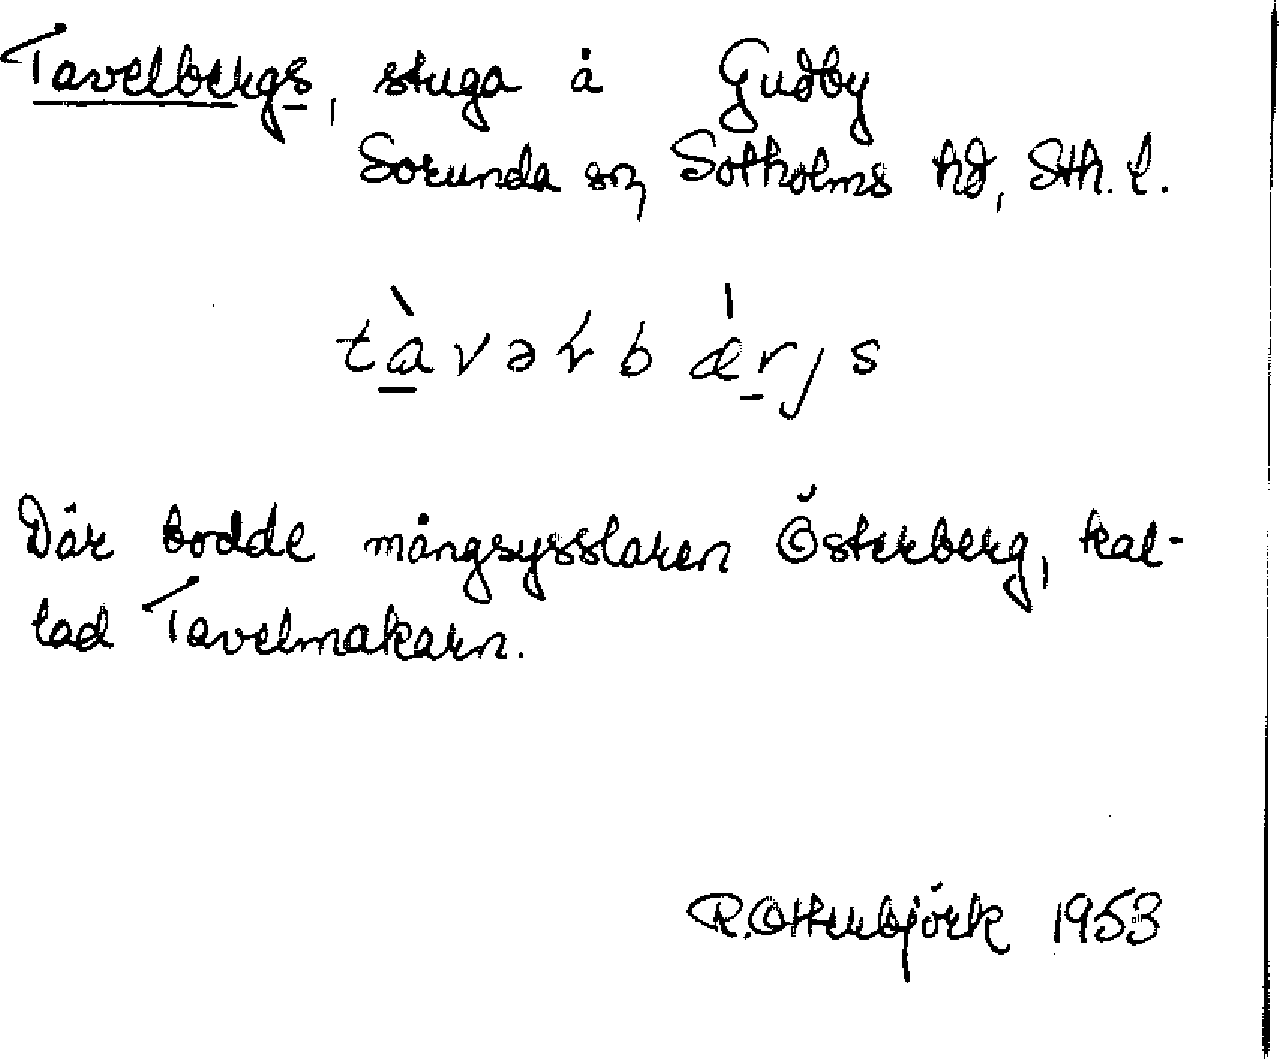 Tavelbergs, stuga å Gudby
Sorunda sn, Sotholms hd, Sth. l.
tàvəɫbǽrjs
Där bodde mångsysslaren Österberg, kal-
lad Tavelmakarn.
R. Otterbjörk 1953